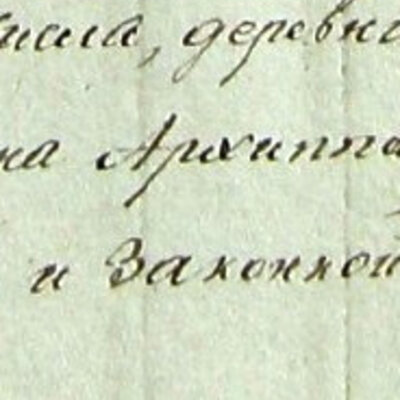 числа, деревн
на Архиппа
и Законной